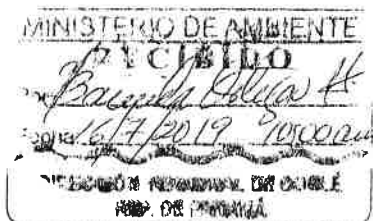 MINISTERIO DE AMBIENTE
RECIBIDO
Por
Fecha 16/7/2019 10:00am
DIRECCIÓN REGIONAL DE COCLÉ
REP. DE PANAMÁ